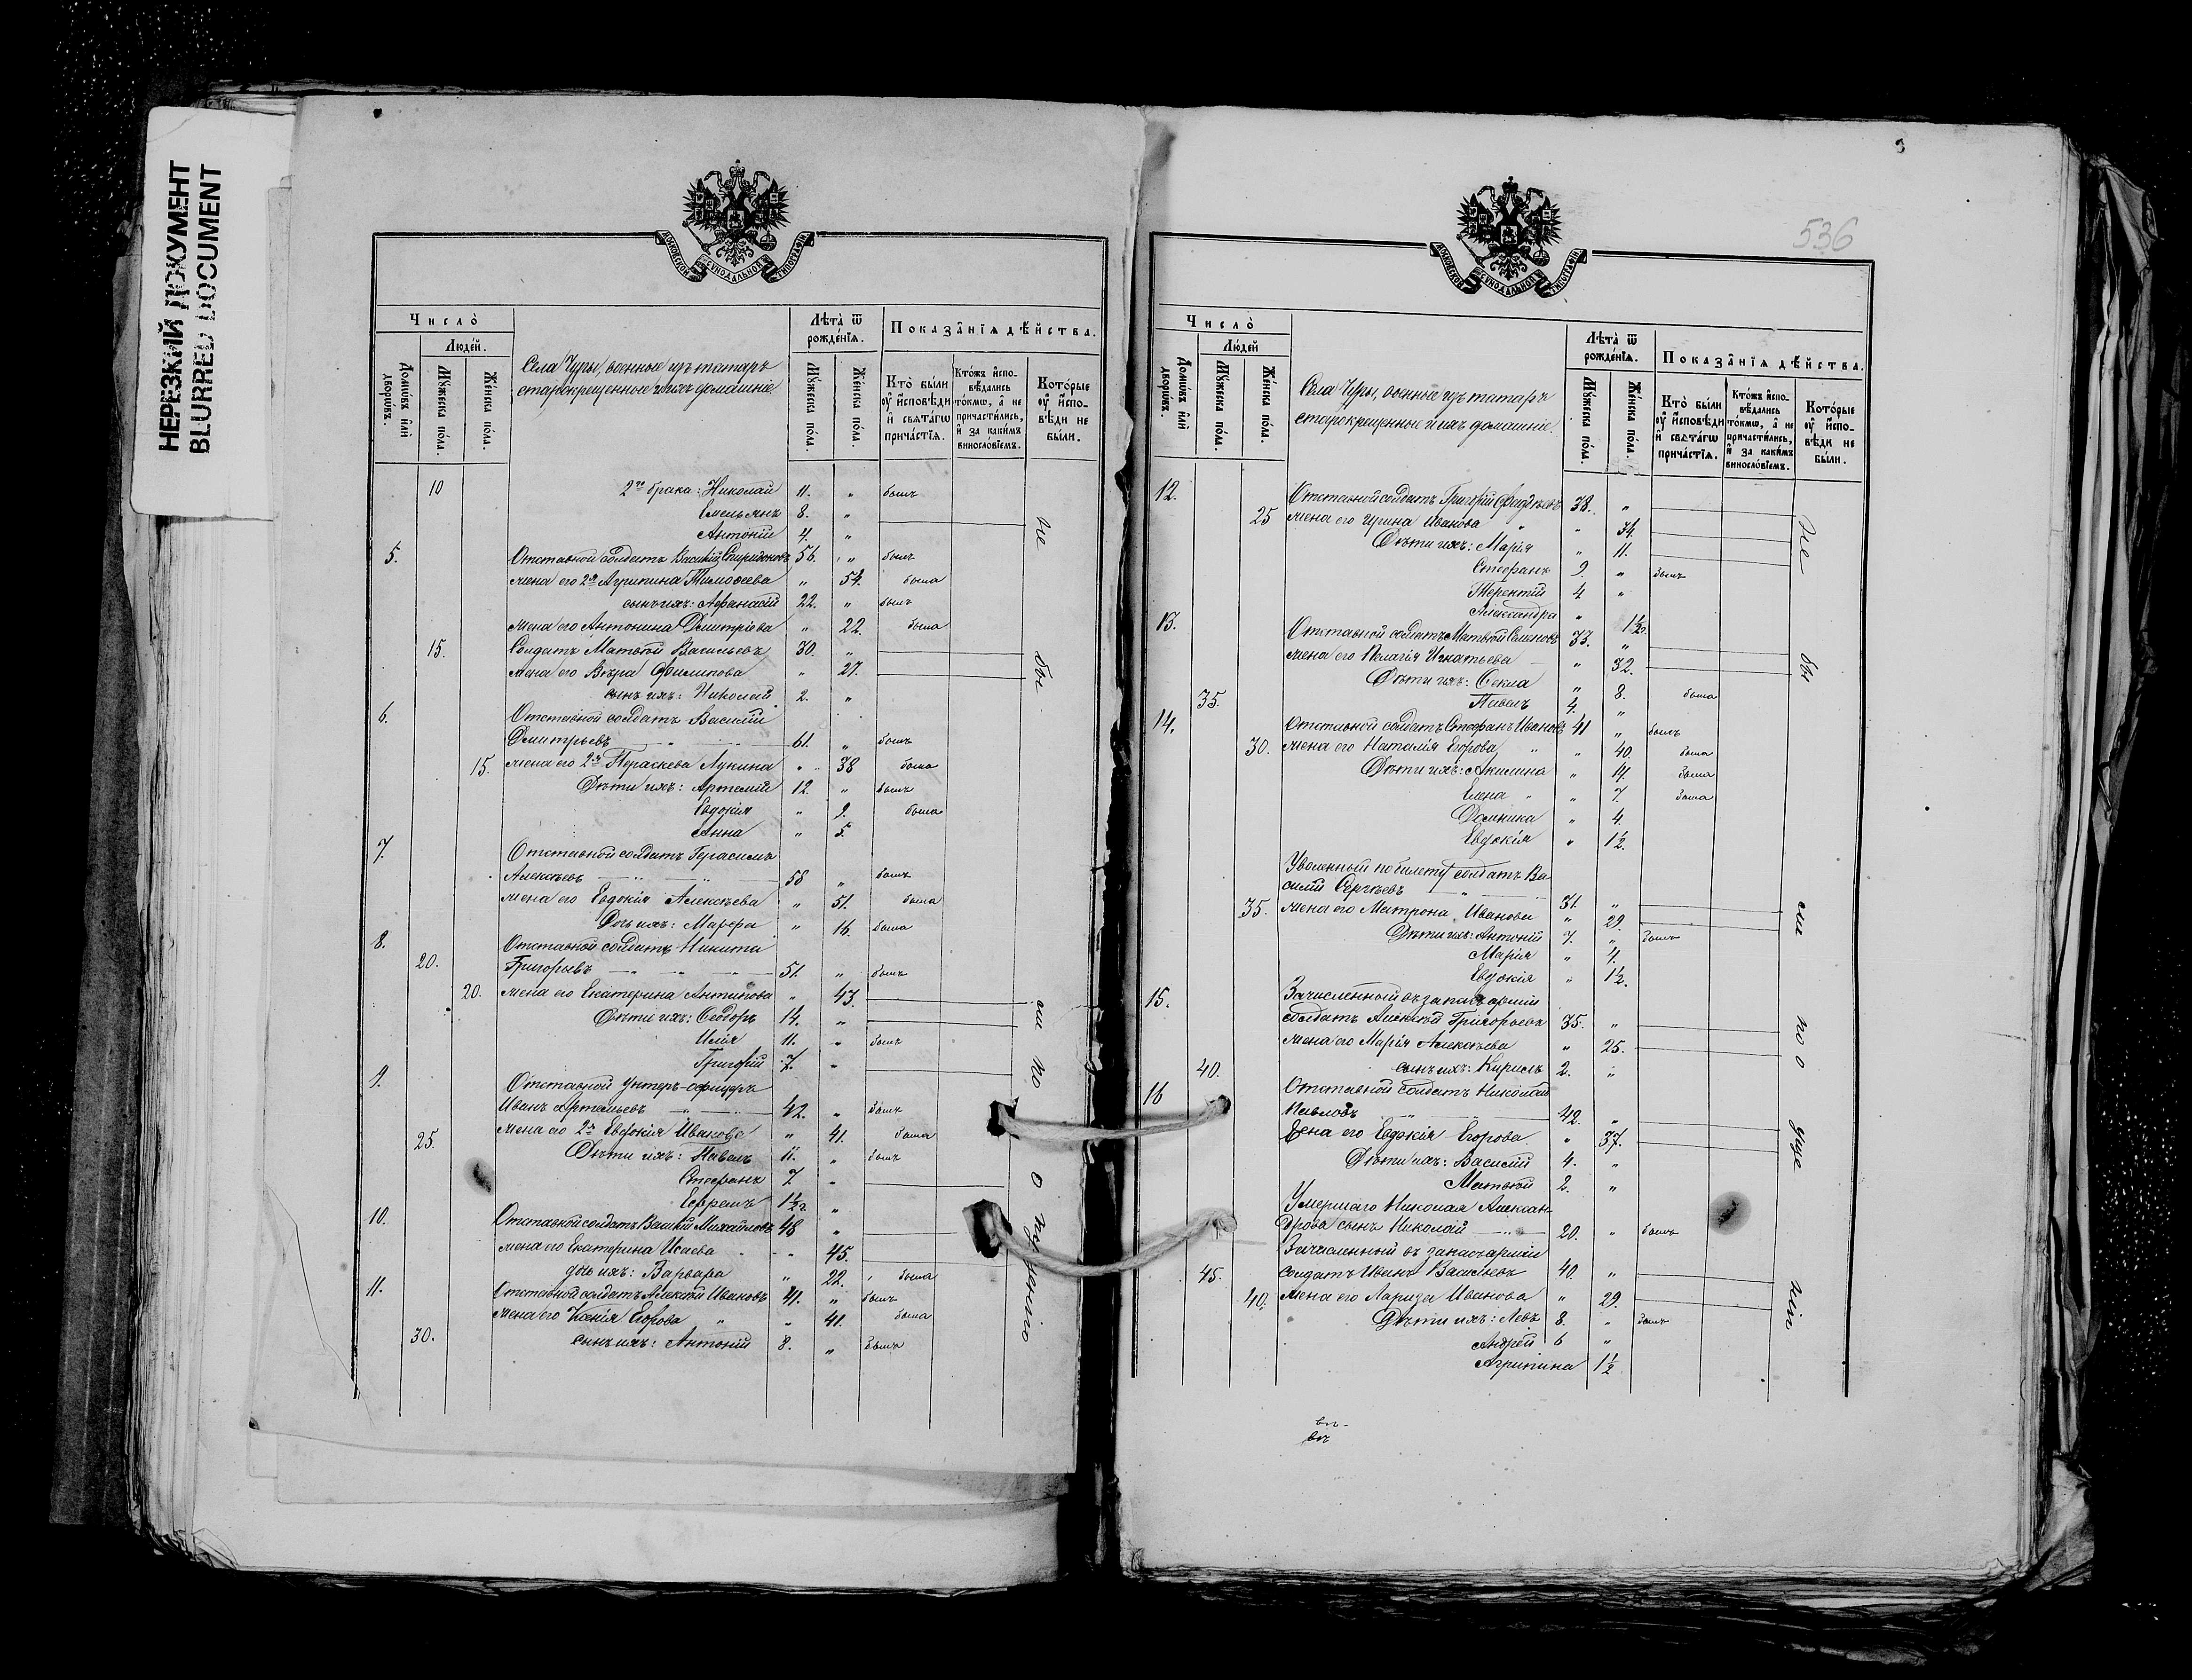 НЕРЕЗКИЙ ДОКУМЕНТ
BLURRED DOCUMENT
МОСКОВСКОЙ СѴНОДАЛЬНОЙ ТИПОГРАФІИ
Число̀
Людéй.
Домѡ́въ и҆лѝ дворѡ́въ.
Мꙋ́жеска по́ла.
Же́нска по́ла.
Села Чуры, военные изъ татаръ
старокрещенные и ихъ домашніе.
Лѣ́та ѿ рожде́нїѧ.
Мꙋ́жеска по́ла.
Же́нска по́ла.
Показа̑нїѧ дѣ́йства.
Кто̀ бы́ли оу҆ и҆сповѣ́ди и҆ свѧта́гѡ прича́стїѧ.
Кто́жъ и҆спо-вѣ́дались то́кмѡ, а҆ не причасти́лись, и҆ за каки́мъ винослѡ́вїемъ.
Кото́рые оу҆ и҆спо-вѣ́ди не бы́ли.
10 2го брака: Николай 11. " былъ
Емельянъ 8. "
Антоній 4. "
5. Отставной солдатъ Василій Спиридоновъ 56. " былъ
жена его 2я Агрипина Тимоѳеева " 54. была
сынъ ихъ: Афанасій 22. " былъ
жена его Антонина Димитріева " 22. была
15. Солдатъ Матвѣй Васильевъ 30. "
жена его Вѣра Филипова " 27.
сынъ ихъ: Николай 2. "
6. Отставной солдатъ Василій
Димитрьевъ 61. " былъ
15. жена его 2я Параскева Лукина " 38 была
Дѣти ихъ: Артемій 12. " былъ
Евдокія " 9. была
Анна " 5.
7. Отставной солдатъ Герасимъ
Алексѣевъ 58 " былъ
жена его Евдокія Алексѣева " 51. была
Дочь ихъ: Марѳа " 16. была
8. Отставной солдатъ Никита
20. Григорьевъ 51. " былъ
20. жена его Екатерина Антипова " 43.
Дѣти ихъ: Ѳеодоръ 14. "
Илія 11. " былъ
Григорій 7. "
9. Отставной унтеръ-офицеръ
Иванъ Артемьевъ 42. " былъ
25. жена его 2я Евдокія Иванова " 41. была
Дѣти ихъ: Павелъ 11. " былъ
Стефанъ 7 "
Ефремъ 1½ "
10. Отставной солдатъ Василій Михайловъ 48 "
жена его Екатерина Исаева " 45.
дочь ихъ: Варвара " 22. была
11. Отставной солдатъ Алексѣй Ивановъ 41. " былъ
жена его Ксенія Егорова " 41. была
30. сынъ ихъ: Антоній 8. " былъ
не бы ли по о пущенію
536
МОСКОВСКОЙ СѴНОДАЛЬНОЙ ТИПОГРАФІИ
Число̀
Людéй
Домѡ́въ и҆лѝ дворѡ́въ.
Мꙋ́жеска по́ла.
Же́нска по́ла.
Села Чуры, военные изъ татаръ
старокрещенные и ихъ домашніе.
Лѣ́та ѿ рожде́нїѧ.
Мꙋ́жеска по́ла.
Же́нска по́ла.
Показа̑нїѧ дѣ́йства.
Кто̀ бы́ли оу҆ и҆сповѣ́ди и҆ свѧта́гѡ прича́стїѧ.
Кто́жъ и҆спо-вѣ́дались то́кмѡ, а҆ не причасти́лись, и҆ за каки́мъ винослѡ́вїемъ.
Кото́рые оу҆ и҆спо-вѣ́ди не бы́ли.
12. Отставной солдатъ Григорій Фадѣевъ 38. "
25 жена его Ирина Иванова " 34.
Дѣти ихъ: Марія " 11.
Стефанъ 9. " былъ
Терентій 4 "
Александра " 1½
13. Отставной солдатъ Матвѣй Семеновъ 33. "
жена его Пелагія Игнатьева " 32.
Дѣти ихъ: Ѳекла " 8. была
35. Павелъ 4. "
14. Отставной солдатъ Стефанъ Ивановъ 41 " былъ
30. жена его Наталія Егорова " 40. была
Дѣти ихъ: Акилина " 14. была
Елена " 7. была
Домника " 4.
Евдокія " 1½.
Уволенный по билету солдатъ Ва-
силій Сергѣевъ 31. "
35. жена его Матрона Иванова " 29.
Дѣти ихъ: Антоній 7. " былъ
Марія " 4.
Евдокія " 1½.
15. Зачисленный въ запасъ арміи
солдатъ Алексѣй Григорьевъ 35. "
жена его Марія Алексѣева " 25.
40. сынъ ихъ: Кирилъ 2. "
16 Отставной солдатъ Николай
Павловъ 42. "
Жена его Евдокія Егорова " 37.
Дѣти ихъ: Василій 4. "
Матвѣй 2. "
Умершаго Николая Алексан-
дрова сынъ Николай 20. " былъ
Зачисленный въ запасъ арміи
45. солдатъ Иванъ Васильевъ 40. "
40. жена его Лариза Иванова " 29.
Дѣти ихъ: Левъ 8. " былъ
Андрей 6 "
Агрипина 1½
не бы ли по о пуще нію